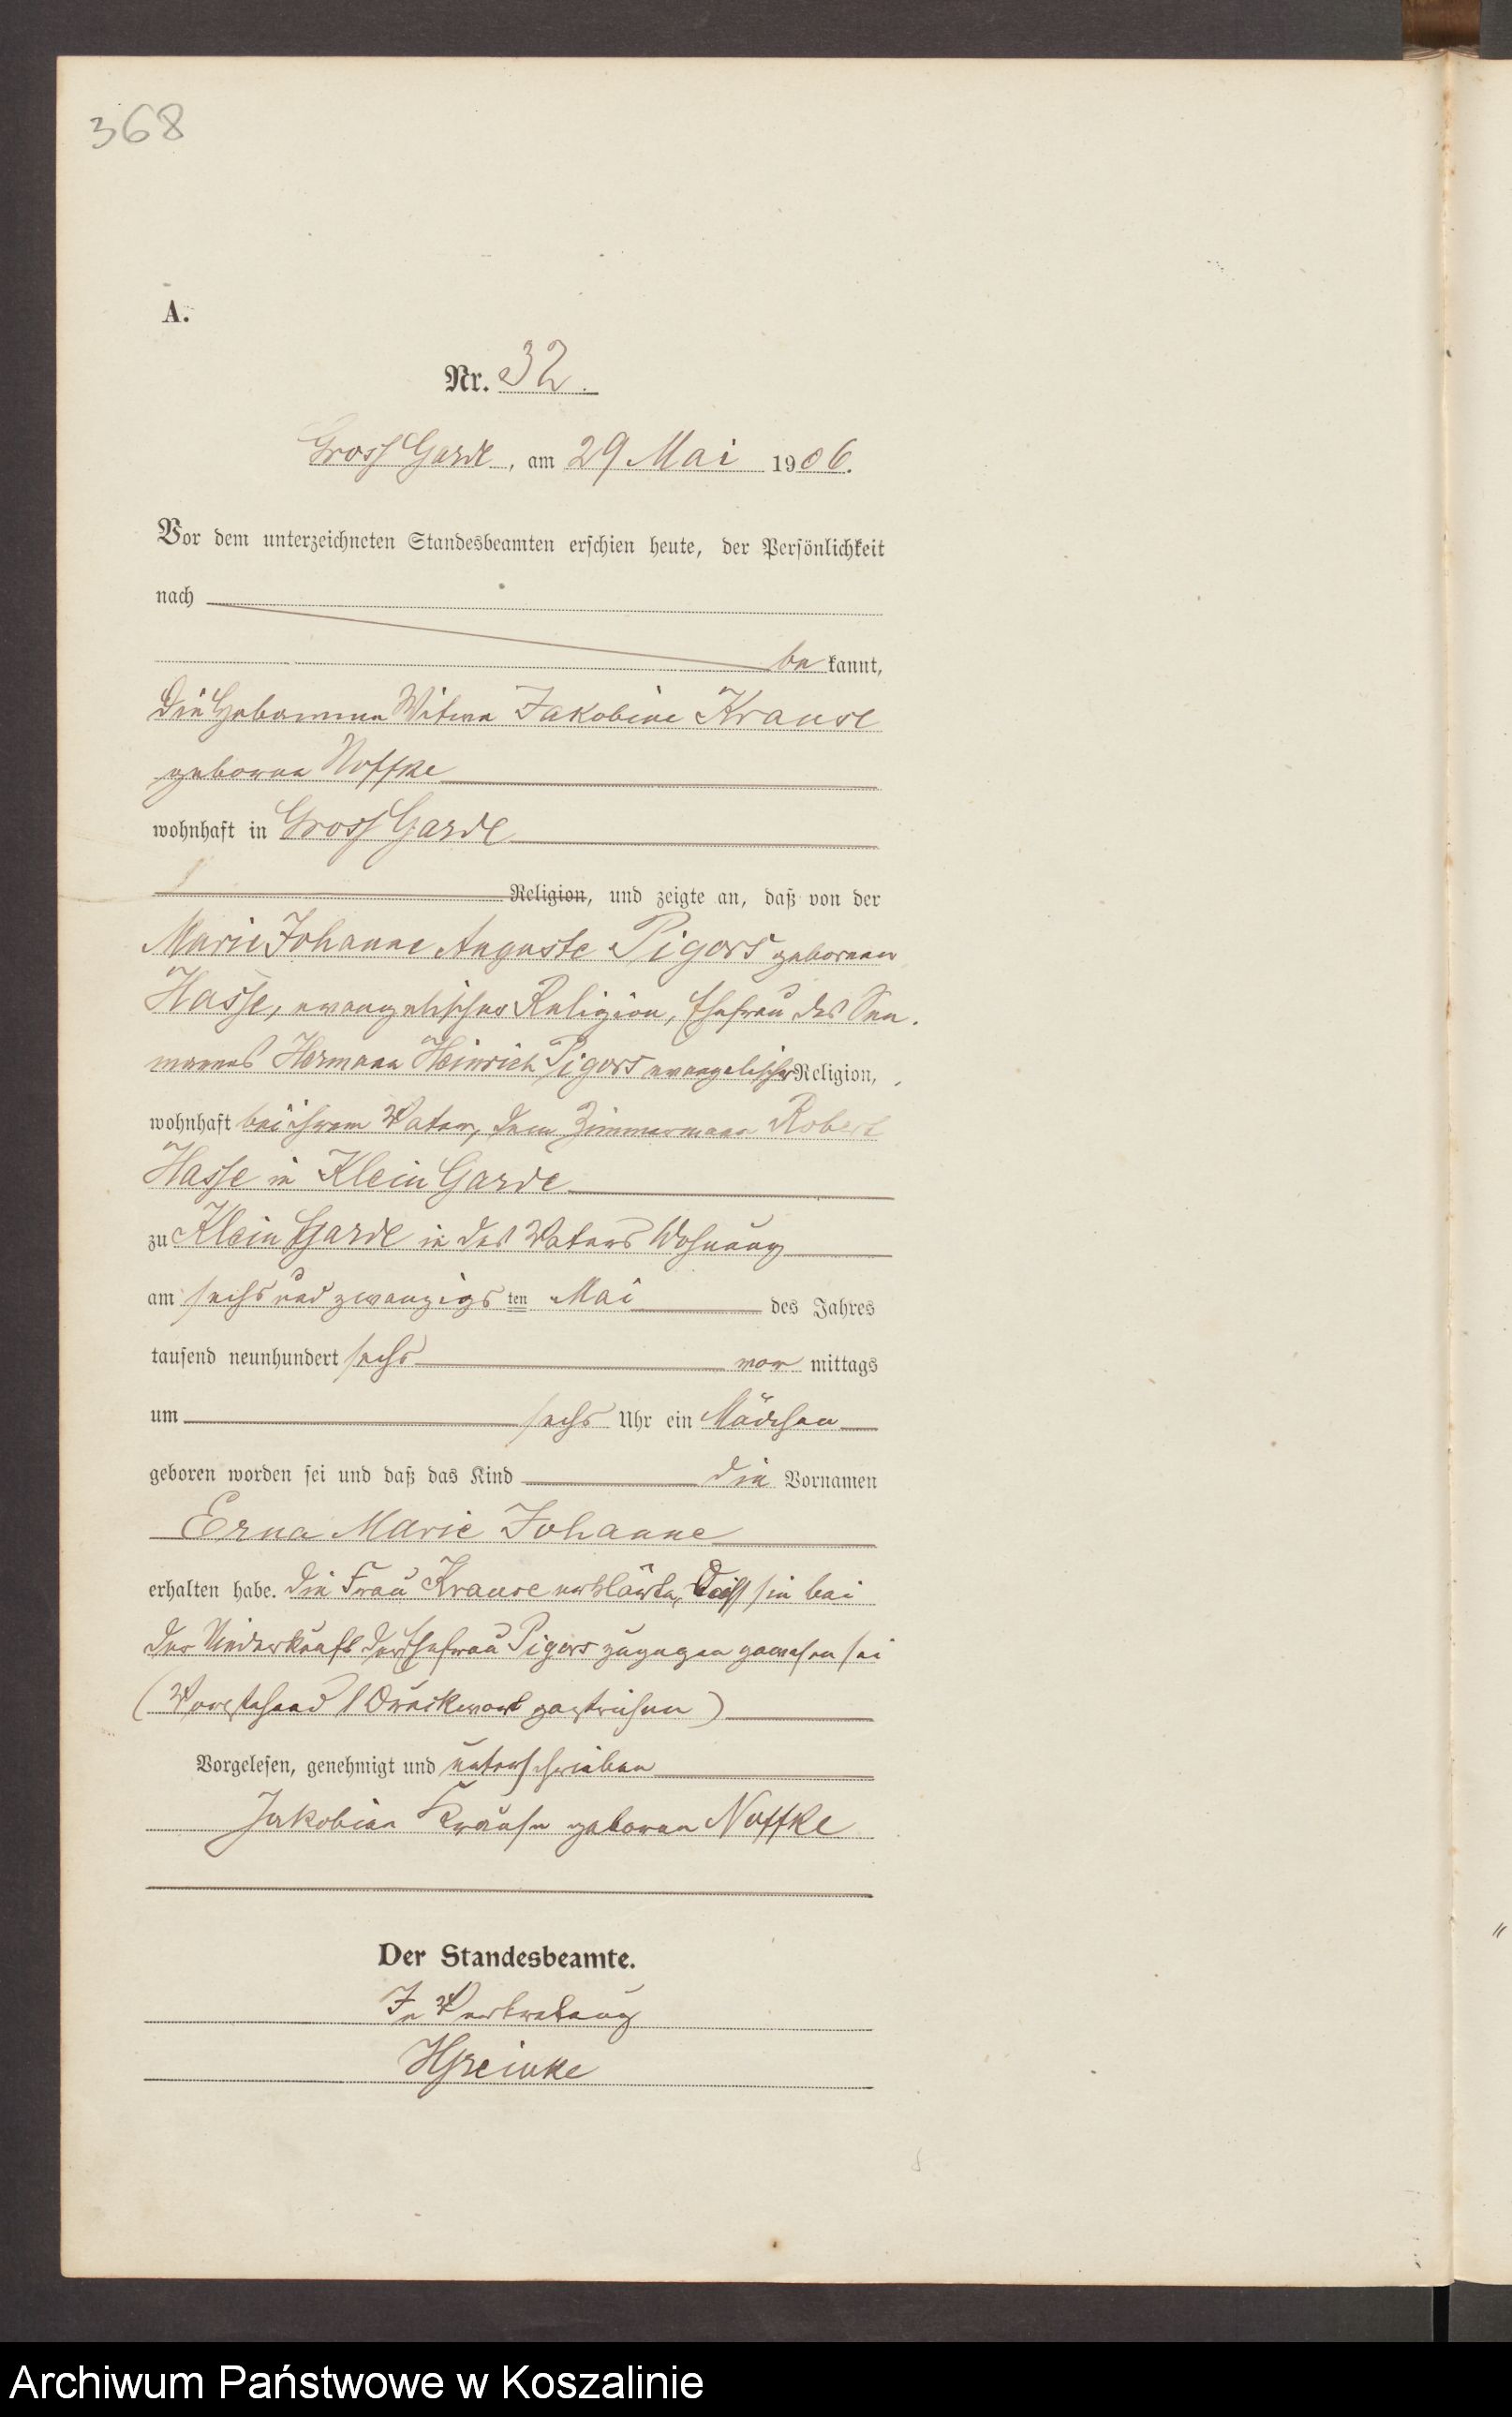 368
A.
Nr. 32.
Gross Garde, am 29 Mai 1906.
Vor dem unterzeichneten Standesbeamten erschien heute, der Persönlichkeit
nach
be kannt,
die Hebamme Witwe Jakobine Krause
geborene Noffke
wohnhaft in Gross Garde
Religion, und zeigte an, daß von der
Marie Johanne Auguste Pigors geborenen
Hasse, evangelischer Religion, Ehefrau des See-
mannes Hermann Heinrich Pigors evangelischer Religion,
wohnhaft bei ihrem Vater, dem Zimmermann Robert
Hasse in Klein Garde
zu Klein Garde in des Vaters Wohnung
am sechs und zwanzigs ten Mai des Jahres
tausend neunhundert sechs vor mittags
um sechs Uhr ein Mädchen
geboren worden sei und daß das Kind die Vornamen
Erna Marie Johanne
erhalten habe. Die Frau Krause erklärte, daß sie bei
der Niederkunft der Ehefrau Pigors zugegen gewesen sei
(Vorstehend 1 Druckwort gestrichen)
Vorgelesen, genehmigt und unterschrieben
Jakobine Krause geborene Noffke
Der Standesbeamte.
In Vertretung
Archiwum Państwowe w Koszalinie